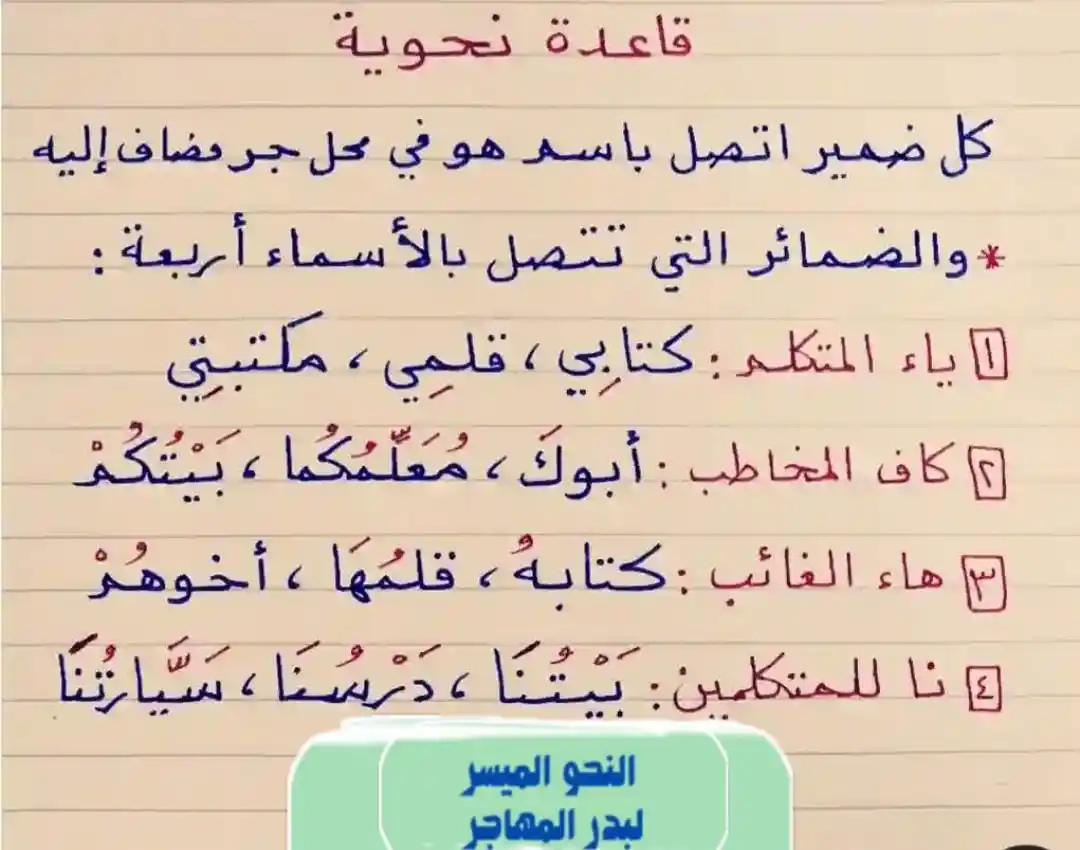 قاعدة نحوية
كل ضمير اتصل باسم هو في محل جر مضاف إليه
* والضمائر التي تتصل بالأسماء أربعة :
١ ياء المتكلم : كتابِي ، قلمِي ، مكتبتِي
٢ كاف المخاطب : أبوكَ ، مُعَلِّمُكُما ، بَيْتُكُمْ
٣ هاء الغائب : كتابهُ ، قلمُهَا ، أخوهُمْ
٤ نا للمتكلمين : بَيْتُنَا ، دَرْسُنَا ، سَيَّارتُنَا
النحو الميسر
لبدر المهاجر